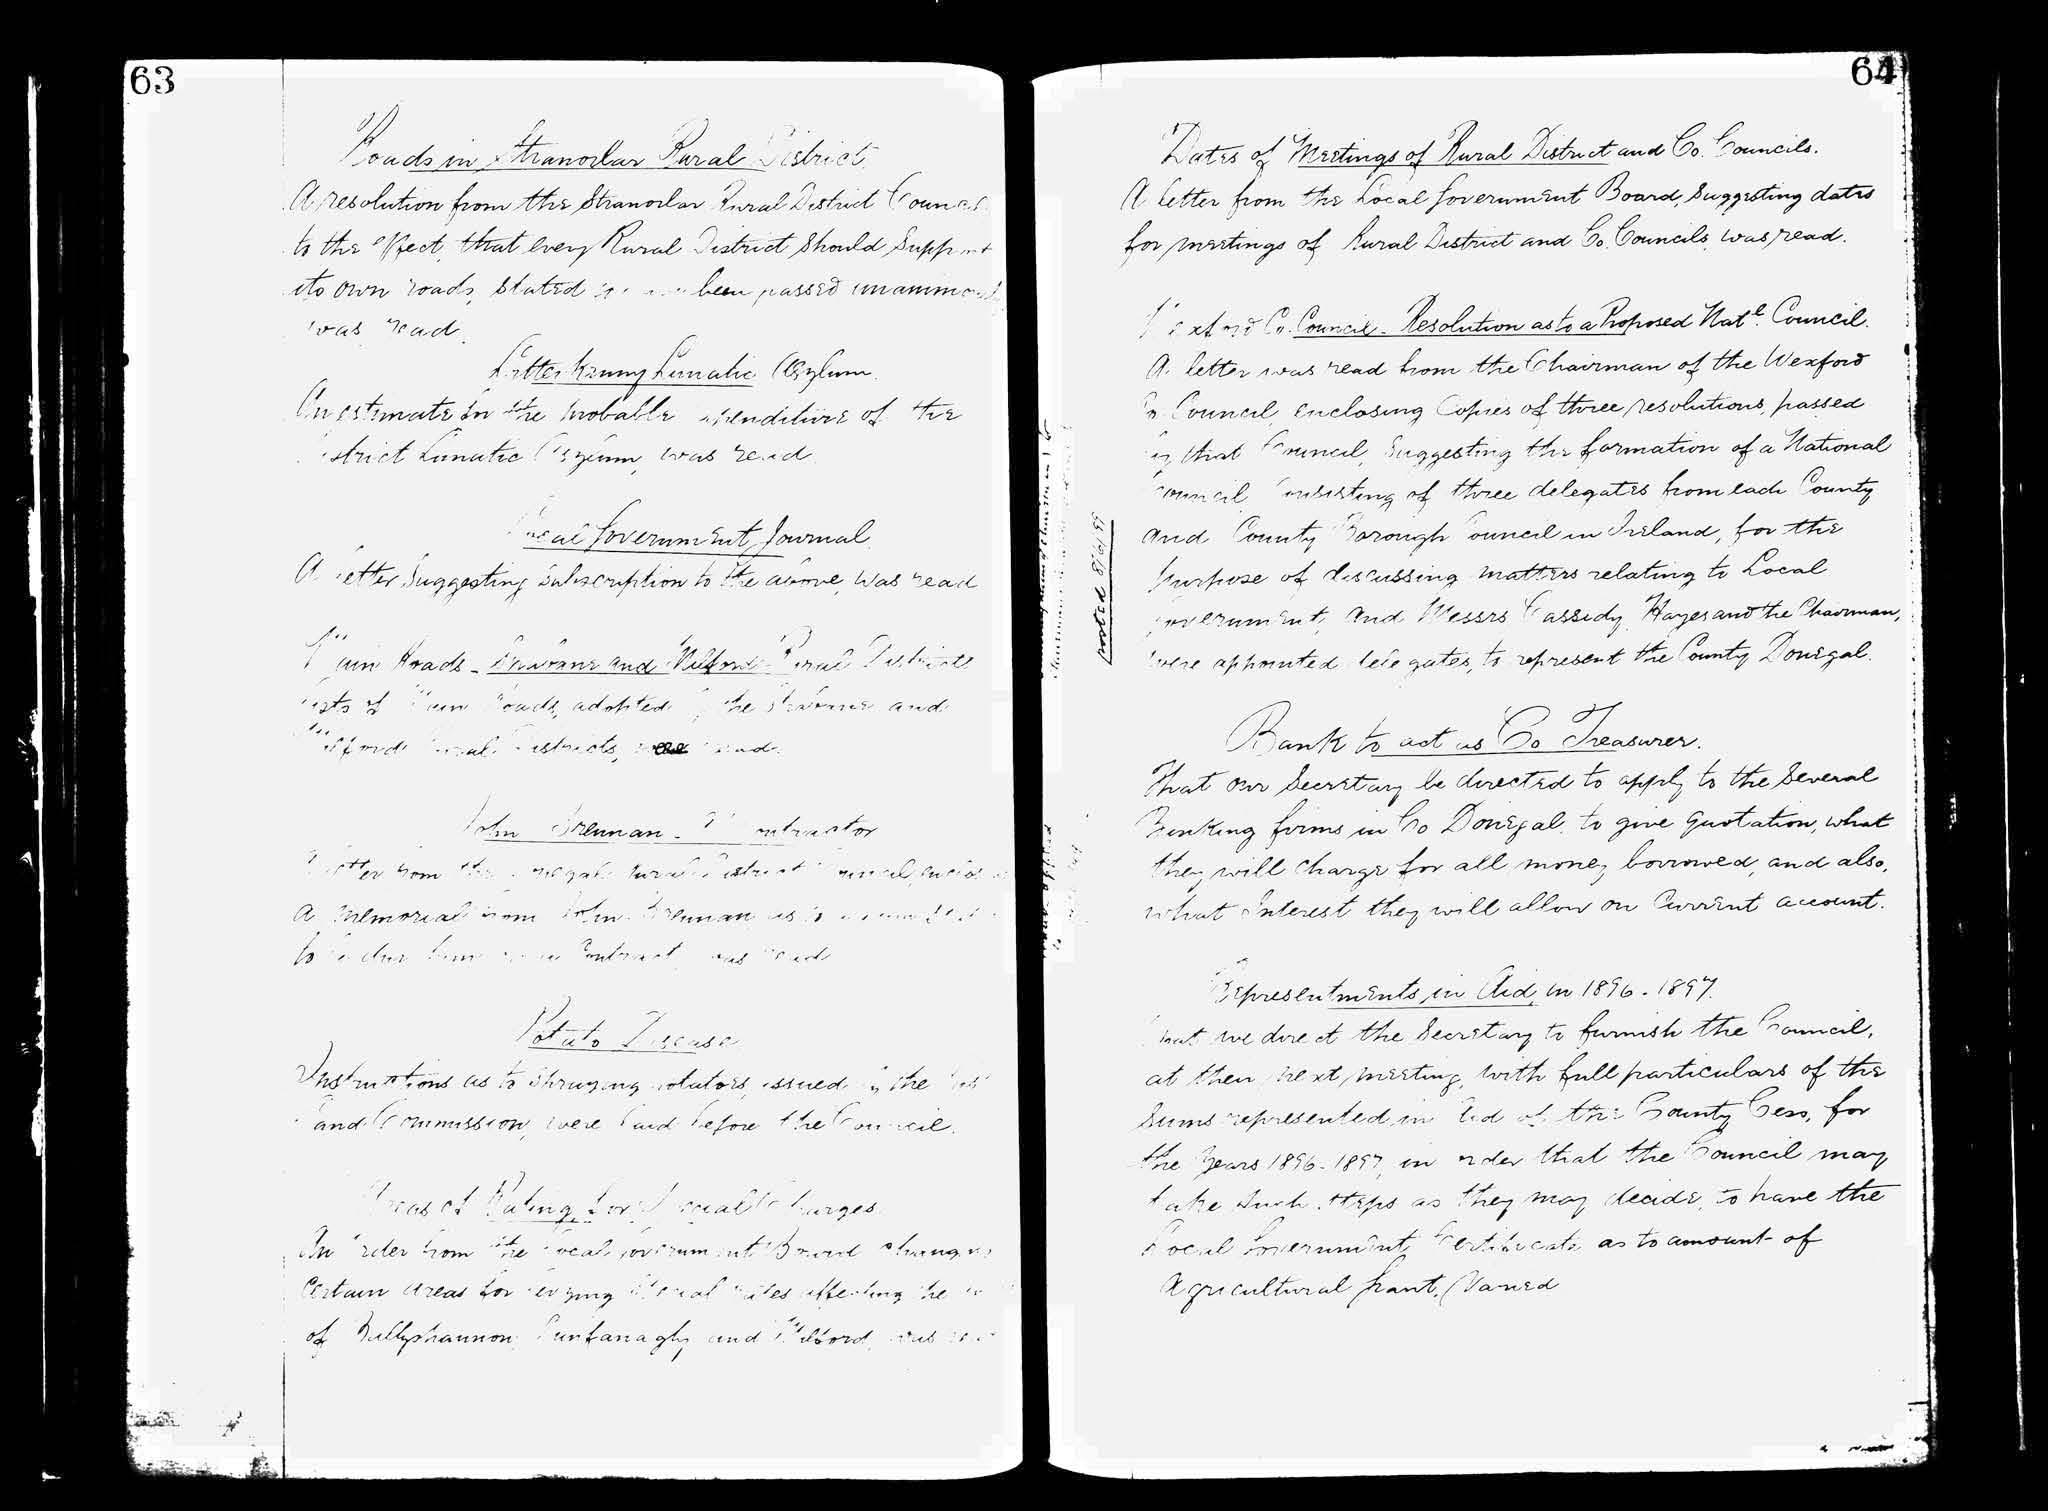 63
Roads in Stranorlar Rural District.
A resolution from the Stranorlar Rural District Council
to the effect, that every Rural District should support
its own roads, stated been passed unanimously
was read.
Letterkenny Lunatic Asylum.
An estimate for the probable expenditure of the
District Lunatic Asylum, was read
Local Government Journal.
A letter suggesting subscription to the above, was read
Main Roads - Strabane and Milford Rural Districts
Lists of Main Roads, adopted by the Strabane and
Milford Rural Districts, read.
John Brennan - Contractor
A letter from the Donegal Rural District Council, enclosing
a memorial from John Brennan as to
to be due him contract, was read
Potato Disease
Instructions as to spraying potatoes, issued by the
Land Commission, were laid before the Council.
Areas of Rating for Special Charges.
An Order from the Local Government Board changing
certain areas for levying Special rates affecting the
of Ballyshannon, Dunfanaghy and Milford, was read
64
Dates of Meetings of Rural District and Co. Councils.
A letter from the Local Government Board, suggesting dates
for meetings of Rural District and Co. Councils, was read.
Wexford Co. Council - Resolution as to a Proposed Natl. Council.
A letter was read from the Chairman of the Wexford
Co. Council, enclosing copies of three resolutions, passed
by that Council, suggesting the formation of a National
Council consisting of three delegates from each County
and County Borough Council in Ireland, for the
purpose of discussing matters relating to Local
Government, and Messrs Cassidy, Hayes and the Chairman,
were appointed delegates, to represent the County Donegal.
posted 8/6/99
Bank to act as Co Treasurer.
That our Secretary be directed to apply to the several
Banking firms in Co Donegal, to give quotation, what
they will charge for all money borrowed, and also,
what Interest they will allow on Current account.
Representments in Aid, in 1896-1897.
That we direct the Secretary to furnish the Council,
at their next meeting, with full particulars of the
sums represented in Aid of the County Cess, for
the Years 1896-1897, in order that the Council may
take such steps as they may decide, to have the
Local Government Certificate as to amount of
Agricultural Grant, (Varied